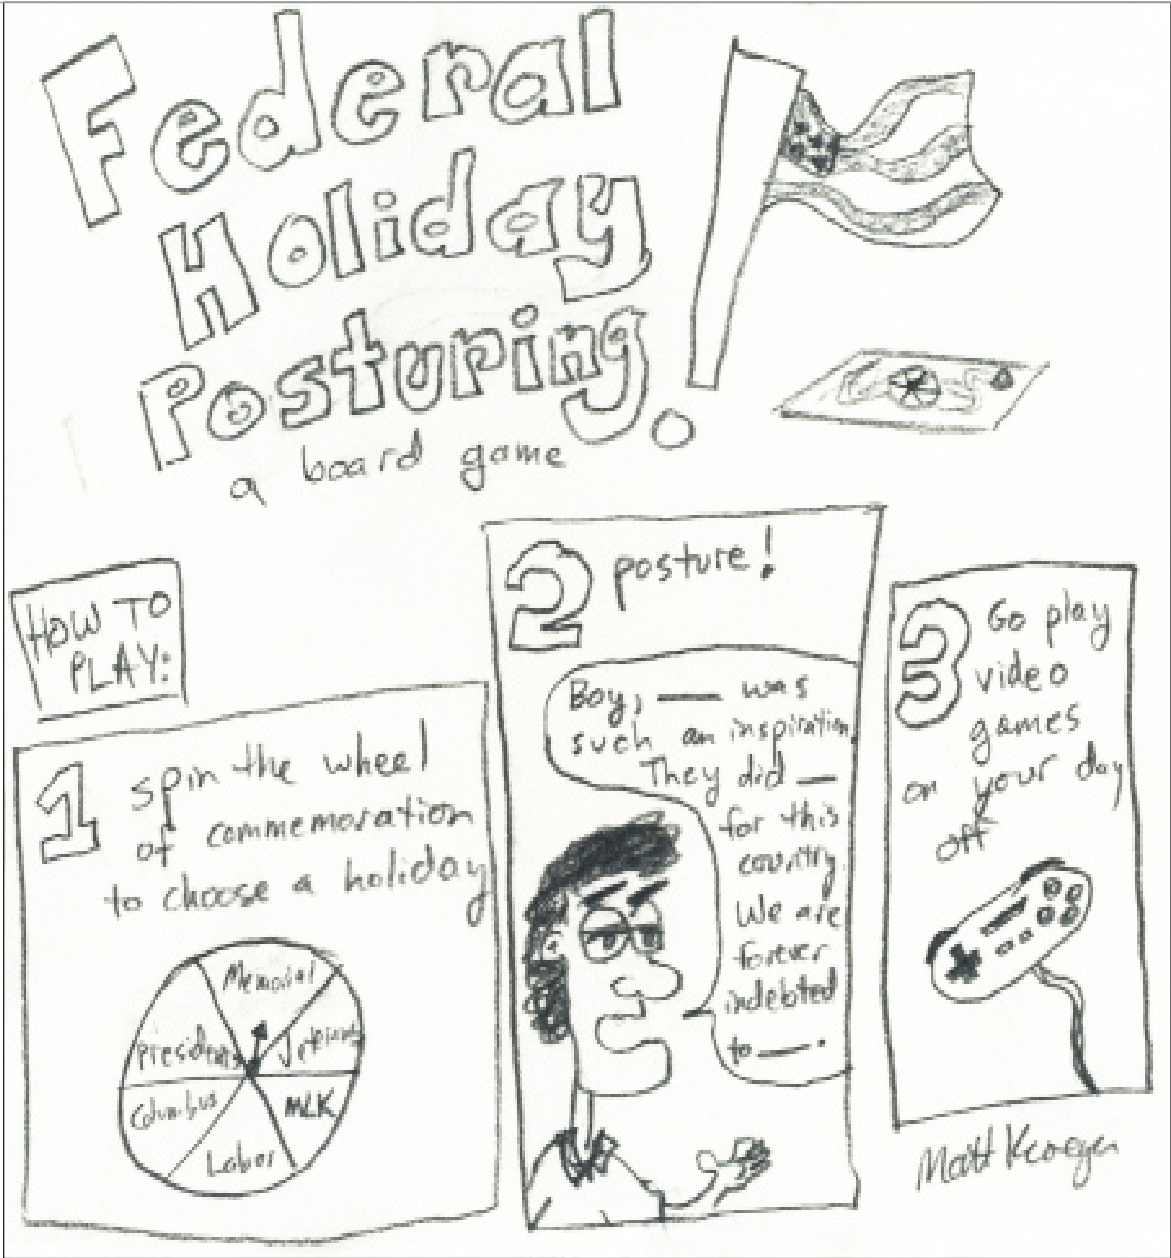 Federal
Holiday
Posturing!
a board game
HOW TO
PLAY:
1 spin the wheel
of commemoration
to choose a holiday
Memorial
Presidents
Veterans
Columbus
MLK
Labor
2 posture!
Boy, — was
such an inspiration.
They did —
for this
country.
We are
forever
indebted
to —.
3 Go play
video
games
on your day
off
Matt